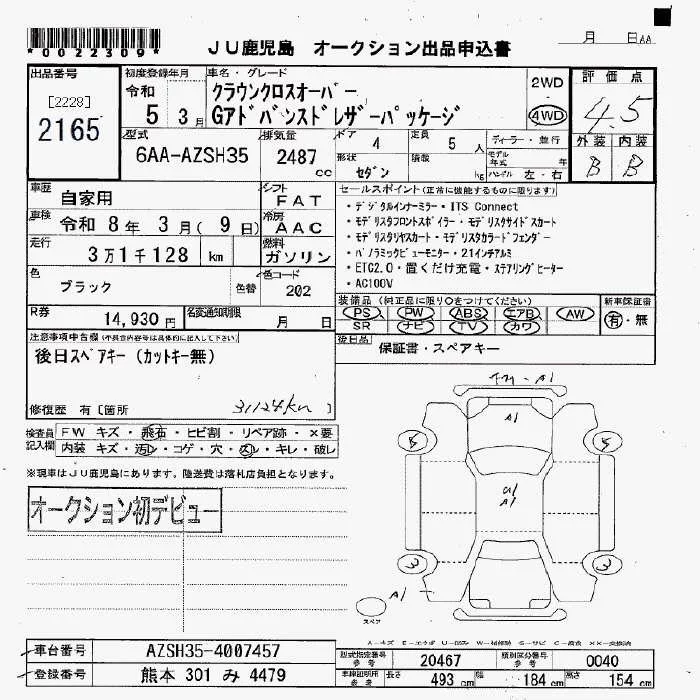 *0022309*
JU鹿児島 オークション出品申込書
月 日AA
出品番号
[2228]
2165
初度登録年月
令和
5 3月
車名・グレード
クラウンクロスオーバー
Gアドバンスドレザーパッケージ
2WD
4WD
評価点
4.5
外装 内装
B B
型式
6AA-AZSH35
排気量
2487 cc
ドア 4
形状 セダン
定員 5 人
積載 kg
ディーラー・並行
モデル年式 年
ハンドル 左・右
車歴 自家用
車検 令和 8年 3月( 9日)
走行 3万1千128 km
色 ブラック
色替
色コード 202
シフト FAT
冷房 AAC
燃料 ガソリン
セールスポイント(正常に機能するものに限ります)
・デジタルインナーミラー・ITS Connect
・モデリスタフロントスポイラー・モデリスタサイドスカート
・モデリスタリヤスカート・モデリスタカラードフェンダー
・パノラミックビューモニター・21インチアルミ
・ETC2.0・置くだけ充電・ステアリングヒーター
・AC100V
R券 14,930円
名変通知期限 月 日
装備品(純正品に限り○をつけてください)
PS PW ABS エアB AW
SR ナビ TV カワ
新車保証書
有・無
後日品 保証書・スペアキー
注意事項申告欄(不具合内容等は具体的に記入して下さい)
後日スペアキー(カットキー無)
修復歴 有〔箇所 31124km 〕
検査員記入欄
FW キズ・飛石・ヒビ割・リペア跡・×要
内装 キズ・汚レ・コゲ・穴・スレ・キレ・破レ
※現車はJU鹿児島にあります。陸送費は落札店負担となります。
オークション初デビュー
A1
A1
A1
5 5
3 3
A1
スペア
車台番号 AZSH35-4007457
登録番号 熊本 301 み 4479
型式指定番号 参考 20467
類別区分番号 参考 0040
車検証明用 参考
長さ 493 cm
幅 184 cm
高さ 154 cm